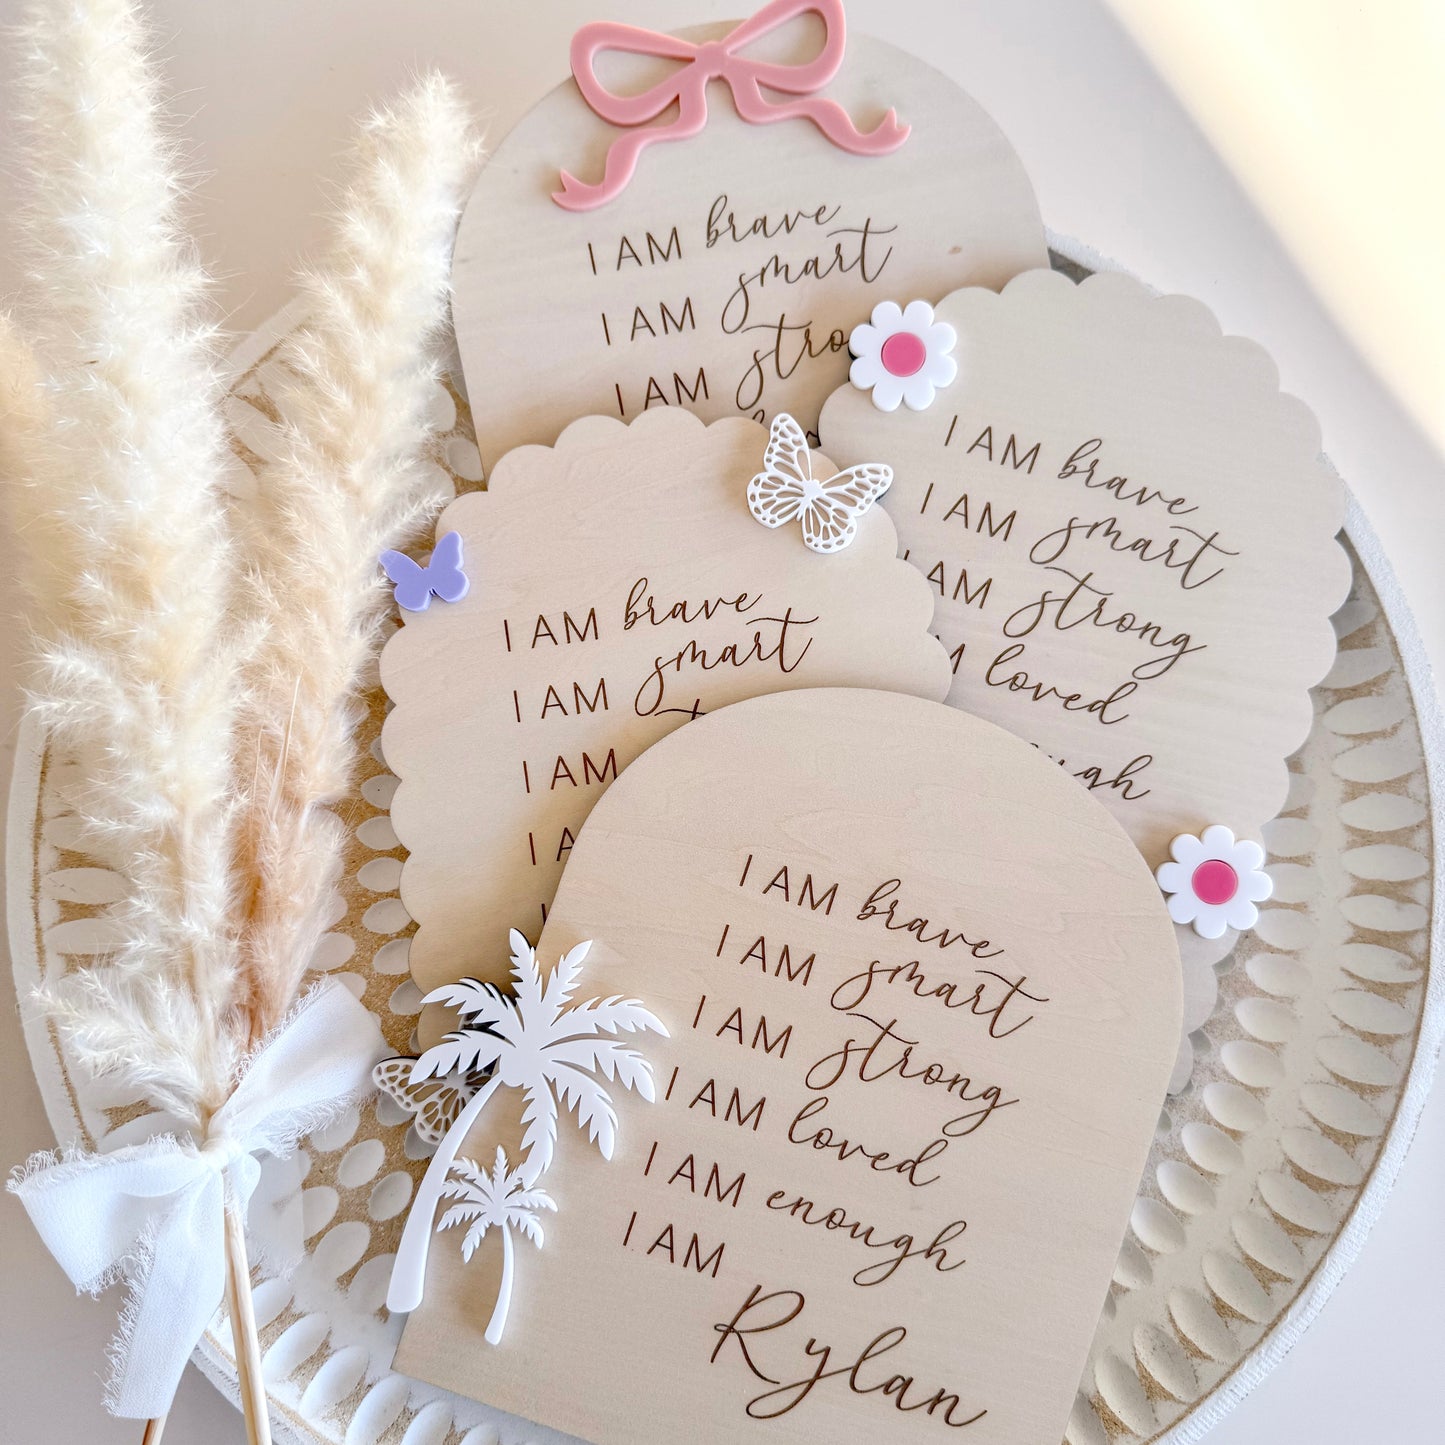 I AM brave
I AM smart
I AM
I AM brave
I AM smart
AM strong
loved
I AM brave
I AM smart
I AM
I AM brave
I AM smart
I AM strong
I AM loved
I AM enough
I AM
Rylan